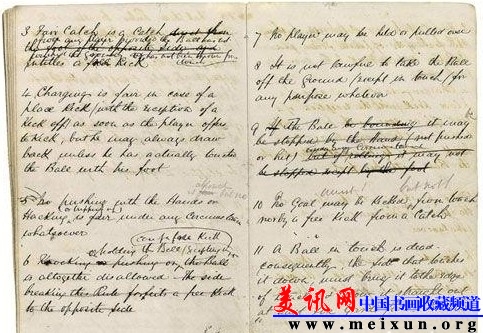 3 Fair Catch is a Catch direct from
the foot of the opposite side and
entitles a free Kick
4. Charging is fair in case of a
place Kick (with the exception of a
Kick off) as soon as the player offers
to Kick, but he may always draw
back unless he has actually touched
the Ball with his foot
5 No pushing with the Hands or
Hacking, is fair under any Circumstances
whatsoever
6 Knocking or pushing on the Ball
is altogether disallowed. The side
breaking this Rule forfeits a free Kick
to the opposite side
7 No player may be held or pulled over
8 It is not lawful to take the Ball
off the Ground (except in touch) for
any purpose whatever
9 If the Ball be bounding it may
be stopped by the Hand, (not pushed
or hit) but if rolling it may not
be stopped except by the foot
10 No Goal may be Kicked from touch
nor by a free Kick from a Catch
11 A Ball in touch is dead
consequently the side that touches
it down must bring it to the edge
of
美讯网 中国书画收藏频道
www.meixun.org